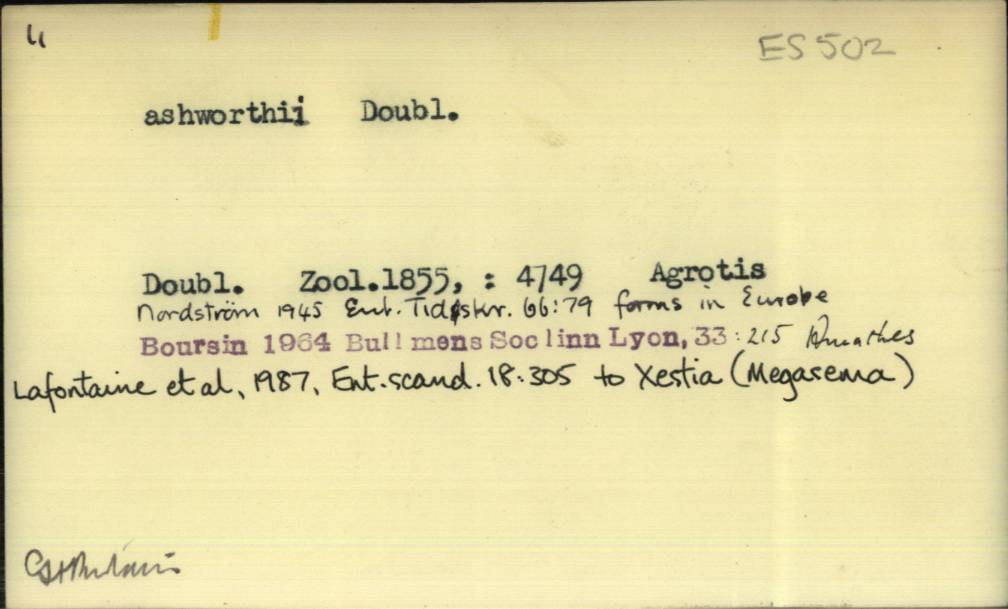 ES 502
ashworthii Doubl.
Doubl. Zool.1855, : 4749 Agrotis
Nordström 1945 Ent. Tidskr. 66:79 forms in Europe
Boursin 1964 Bull mens Soc linn Lyon, 33:215 Amathes
Lafontaine et al, 1987, Ent. scand. 18:305 to Xestia (Megasema)